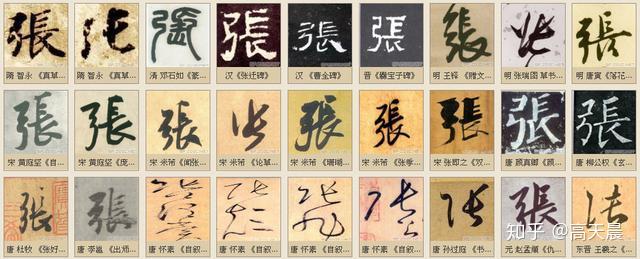 張 張 張 張 張 張 張 張 張
隋 智永《真草... 隋 智永《真草... 清 邓石如《篆... 汉《张迁碑》 汉《曹全碑》 晋《爨宝子碑》 明 王铎《赠文... 明 张瑞图 草书... 明 唐寅《落花...
張 張 張 張 張 張 張 張 張
宋 黄庭坚《自... 宋 黄庭坚《庞... 宋 米芾《闻张... 宋 米芾《论草... 宋 米芾《珊瑚... 宋 米芾《张季... 宋 张即之《双... 唐 颜真卿《颜... 唐 柳公权《玄...
張 張 張 張 張 張
唐 杜牧《张好... 唐 李邕《出师... 唐 怀素《自叙... 唐 怀素《自叙... 唐 怀素《自叙... 唐 怀素《自叙... 唐 孙过庭《书... 元 赵孟頫《仇... 东晋 王羲之《...
知乎 @高天晨